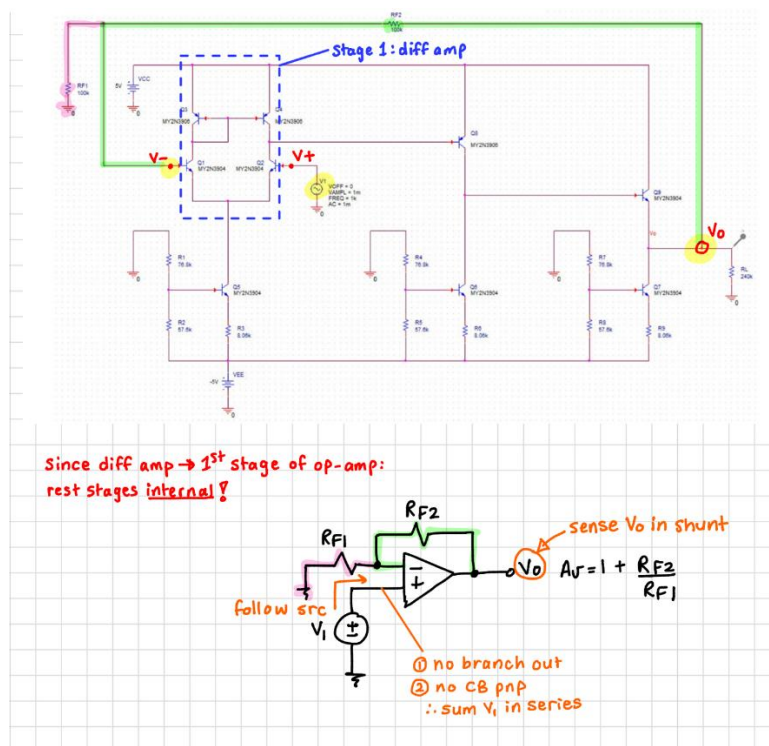 RF2
100k
stage 1: diff amp
RF1
100k
5V
VCC
Q3
MY2N3906
Q4
MY2N3906
Q8
MY2N3906
V-
Q1
MY2N3904
Q2
MY2N3904
V+
V1
VOFF = 0
VAMPL = 1m
FREQ = 1k
AC = 1m
0
Q9
MY2N3904
Vo
Vo
0
R1
0
Q5
MY2N3904
R2
57.6k
R3
8.06k
0
R4
Q6
MY2N3904
R5
57.6k
0
R7
Q7
MY2N3904
57.6k
R9
8.06k
RL
240k
0
-5V
VEE
0
since diff amp → 1st stage of op-amp:
rest stages internal!
RF1
RF2
sense Vo in shunt
−
+
Vo
Av = 1 + RF2/RF1
follow src
V1
① no branch out
② no CB pnp
∴ sum V1 in series